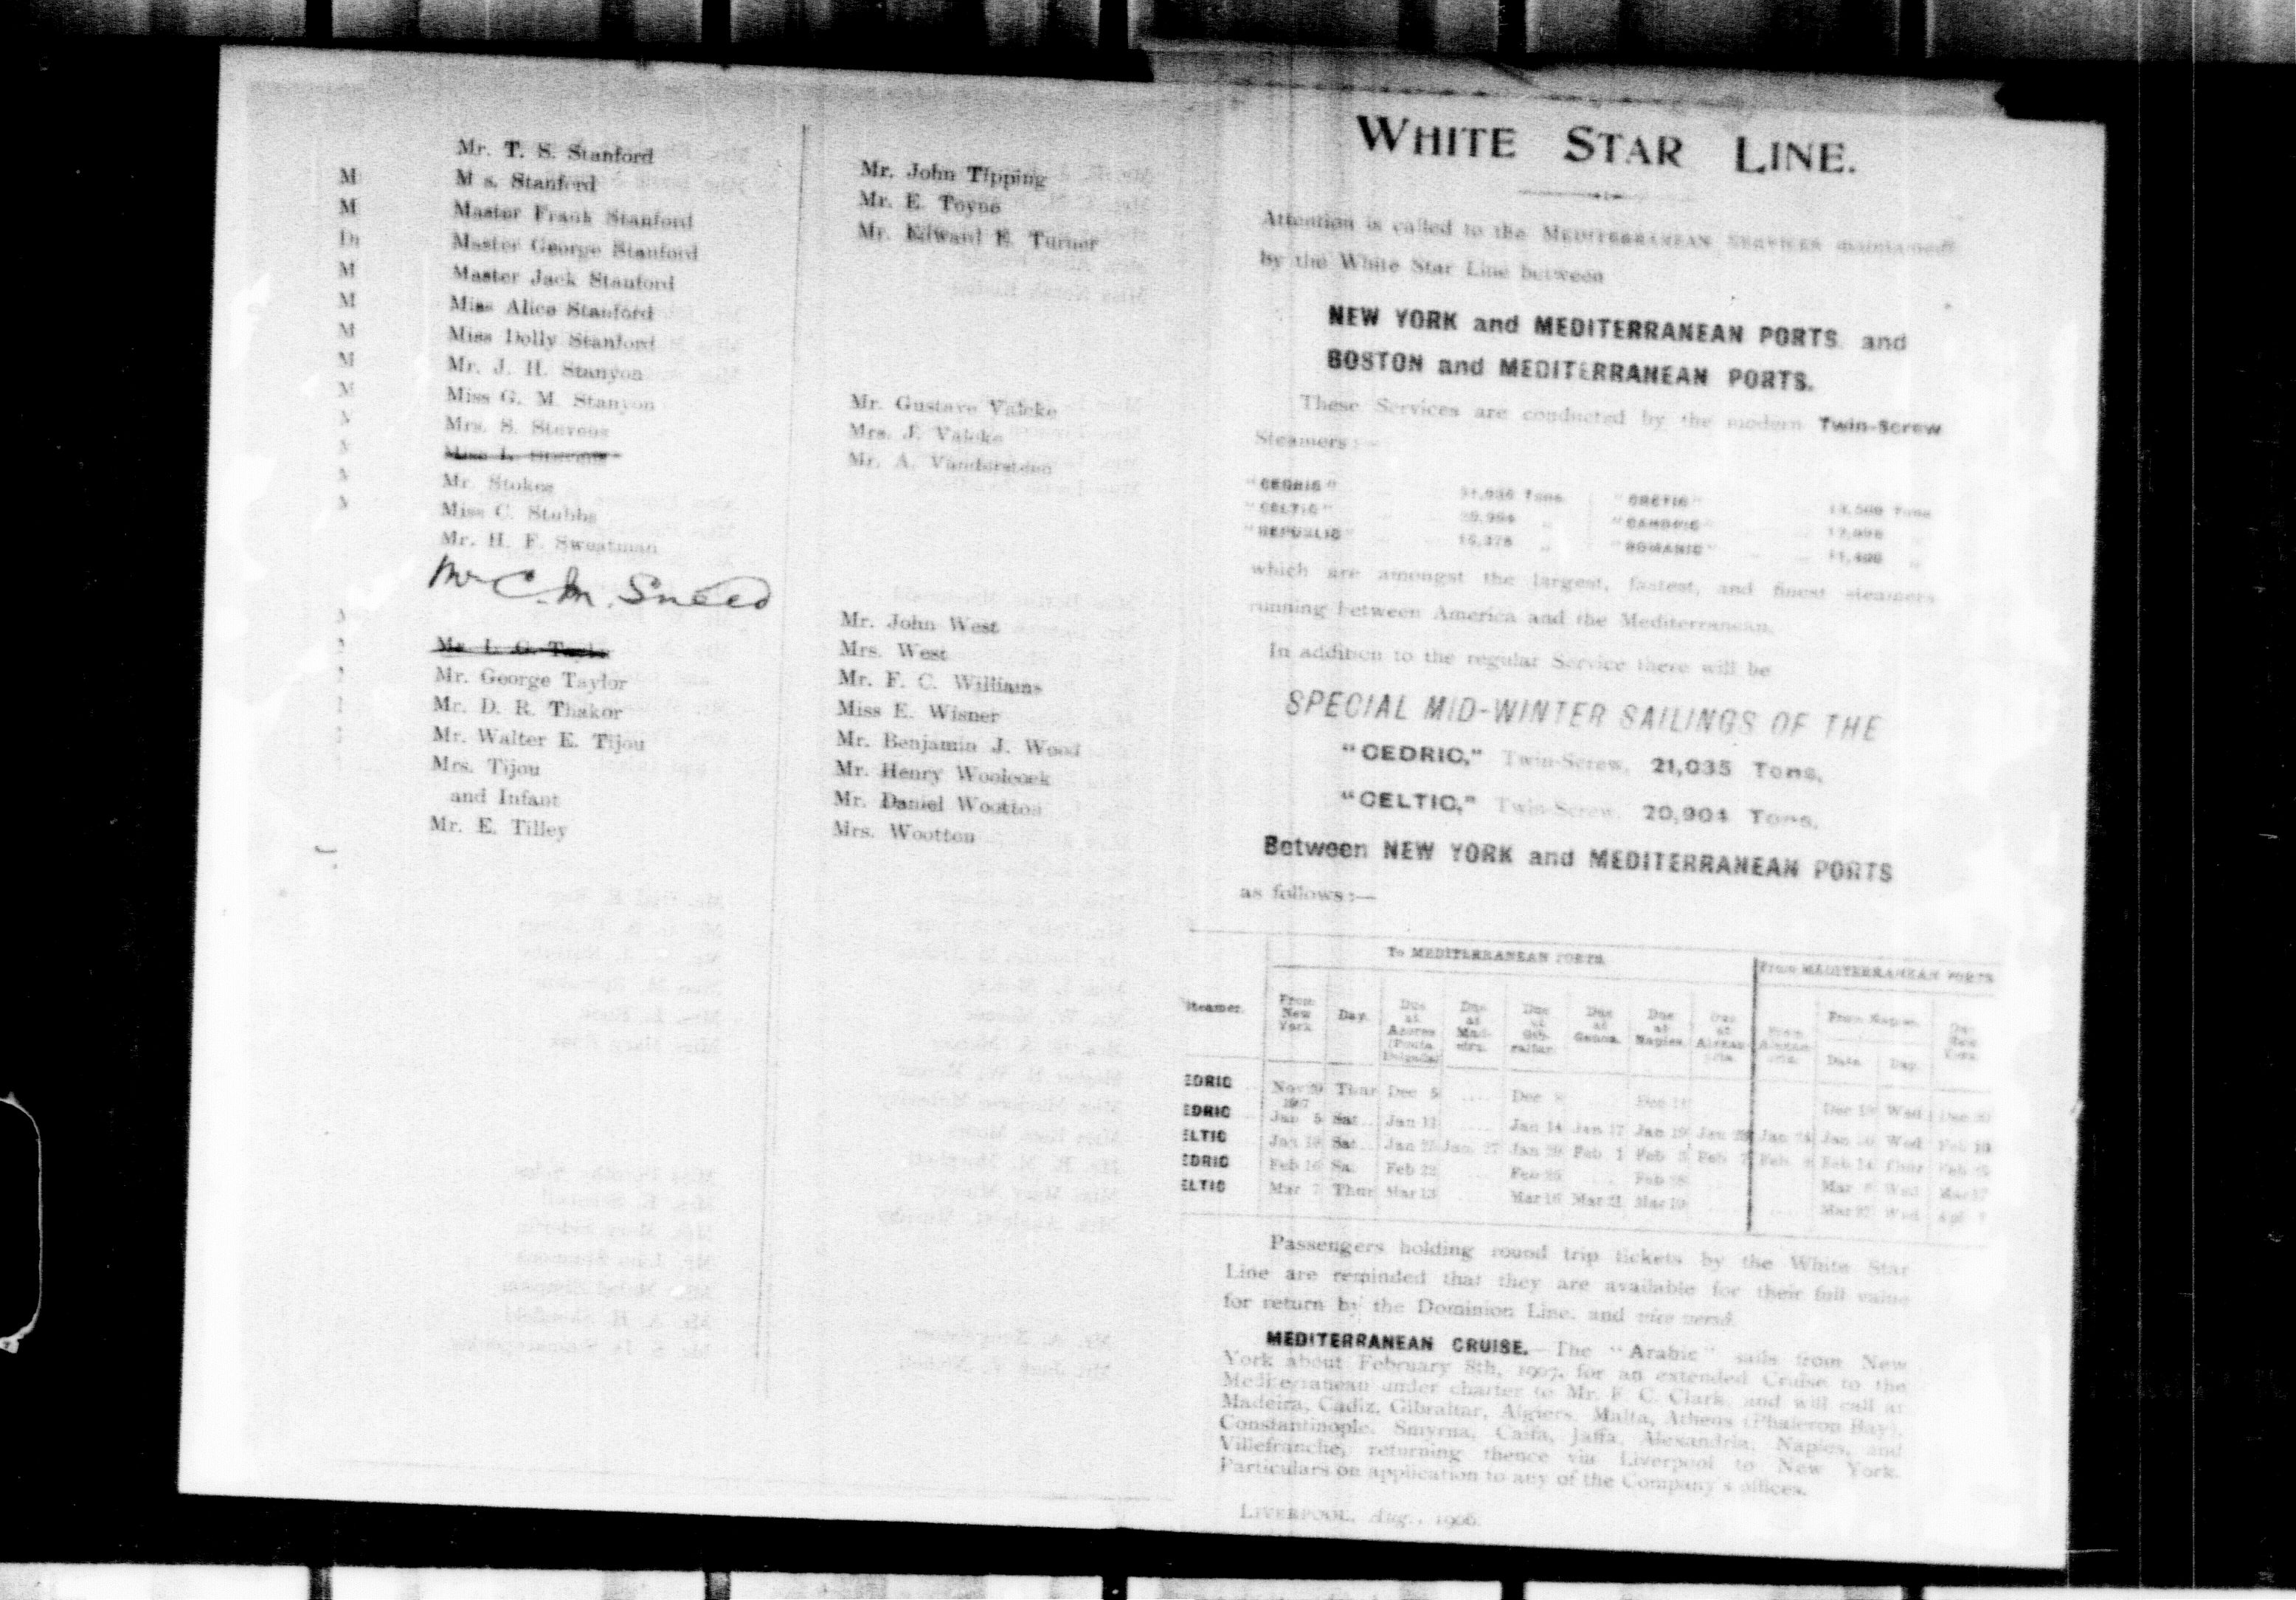 Mr. T. S. Stanford
M s. Stanford
Master Frank Stanford
Master George Stanford
Master Jack Stanford
Miss Alice Stanford
Miss Dolly Stanford
Mr. J. H. Stanyon
Miss G. M. Stanyon
Mrs. S. Stevens
Mr. Stokes
Miss C. Stubbs
Mr. H. F. Sweatman
Mr C. M. Sneed
Mr. George Taylor
Mr. D. R. Thakor
Mr. Walter E. Tijou
Mrs. Tijou
and Infant
Mr. E. Tilley
Mr. John Tipping
Mr. E. Toyne
Mr. Edward E. Turner
Mr. Gustave Valcke
Mrs. J. Valcke
Mr. A. Vandersteen
Mr. John West
Mrs. West
Mr. F. C. Williams
Miss E. Wisner
Mr. Benjamin J. Wood
Mr. Henry Woolcock
Mr. Daniel Wootton
Mrs. Wootton
WHITE STAR LINE.
Attention is called to the MEDITERRANEAN SERVICES maintained
by the White Star Line between
NEW YORK and MEDITERRANEAN PORTS and
BOSTON and MEDITERRANEAN PORTS.
These Services are conducted by the modern Twin-Screw
Steamers:—
"CEDRIC" Tons "CRETIC" 13,500 Tons
"CELTIC" 20,904 " "CANOPIC" "
"REPUBLIC" 15,378 " "ROMANIC" 11,400 "
which are amongst the largest, fastest, and finest steamers
running between America and the Mediterranean.
In addition to the regular Service there will be
SPECIAL MID-WINTER SAILINGS OF THE
"CEDRIC," Twin-Screw, 21,035 Tons,
"CELTIC," Twin-Screw, 20,904 Tons,
Between NEW YORK and MEDITERRANEAN PORTS
as follows:—
To MEDITERRANEAN PORTS From MEDITERRANEAN PORTS
Steamer. From New York Day. Due at Azores (Ponta Delgada) Due at Madeira. Due at Gibraltar. Due at Genoa. Due at Naples. Due at Alexandria. From Alexandria. From Naples. Date. Day. Due New York.
EDRIC Nov Thur Dec 5 .... Dec Dec Wed Dec
1907
EDRIC Jan 5 Sat Jan 11 .... Jan 14 Jan 17 Jan 19 Jan Jan Jan Wed Feb 10
ELTIC Jan Sat Jan Jan 27 Jan Feb 1 Feb Feb Feb Feb Thur Feb
EDRIC Feb 16 Sat Feb 22 .... Feb Feb Mar 6 Wed Mar 17
ELTIC Mar 7 Thur Mar 13 .... Mar 16 Mar 21 Mar 19 Mar 27 Wed Apl
Passengers holding round trip tickets by the White Star
Line are reminded that they are available for their full value
for return by the Dominion Line, and vice versâ.
MEDITERRANEAN CRUISE.—The "Arabic" sails from New
York about February 8th, 1907, for an extended Cruise to the
Mediterranean under charter to Mr. F. C. Clark, and will call at
Madeira, Cadiz, Gibraltar, Algiers, Malta, Athens (Phaleron Bay),
Constantinople, Smyrna, Caifa, Jaffa, Alexandria, Naples, and
Villefranche, returning thence via Liverpool to New York.
Particulars on application to any of the Company's offices.
LIVERPOOL, Aug., 1906.